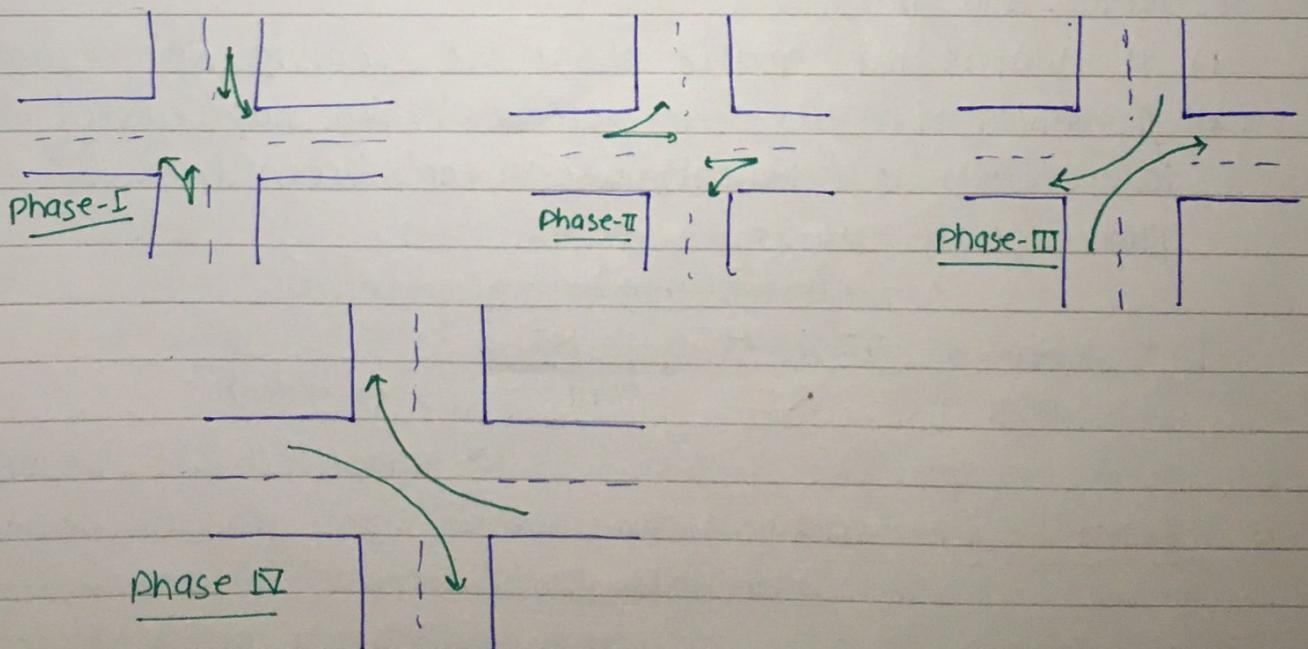 Phase-I
Phase-II
Phase-III
Phase IV